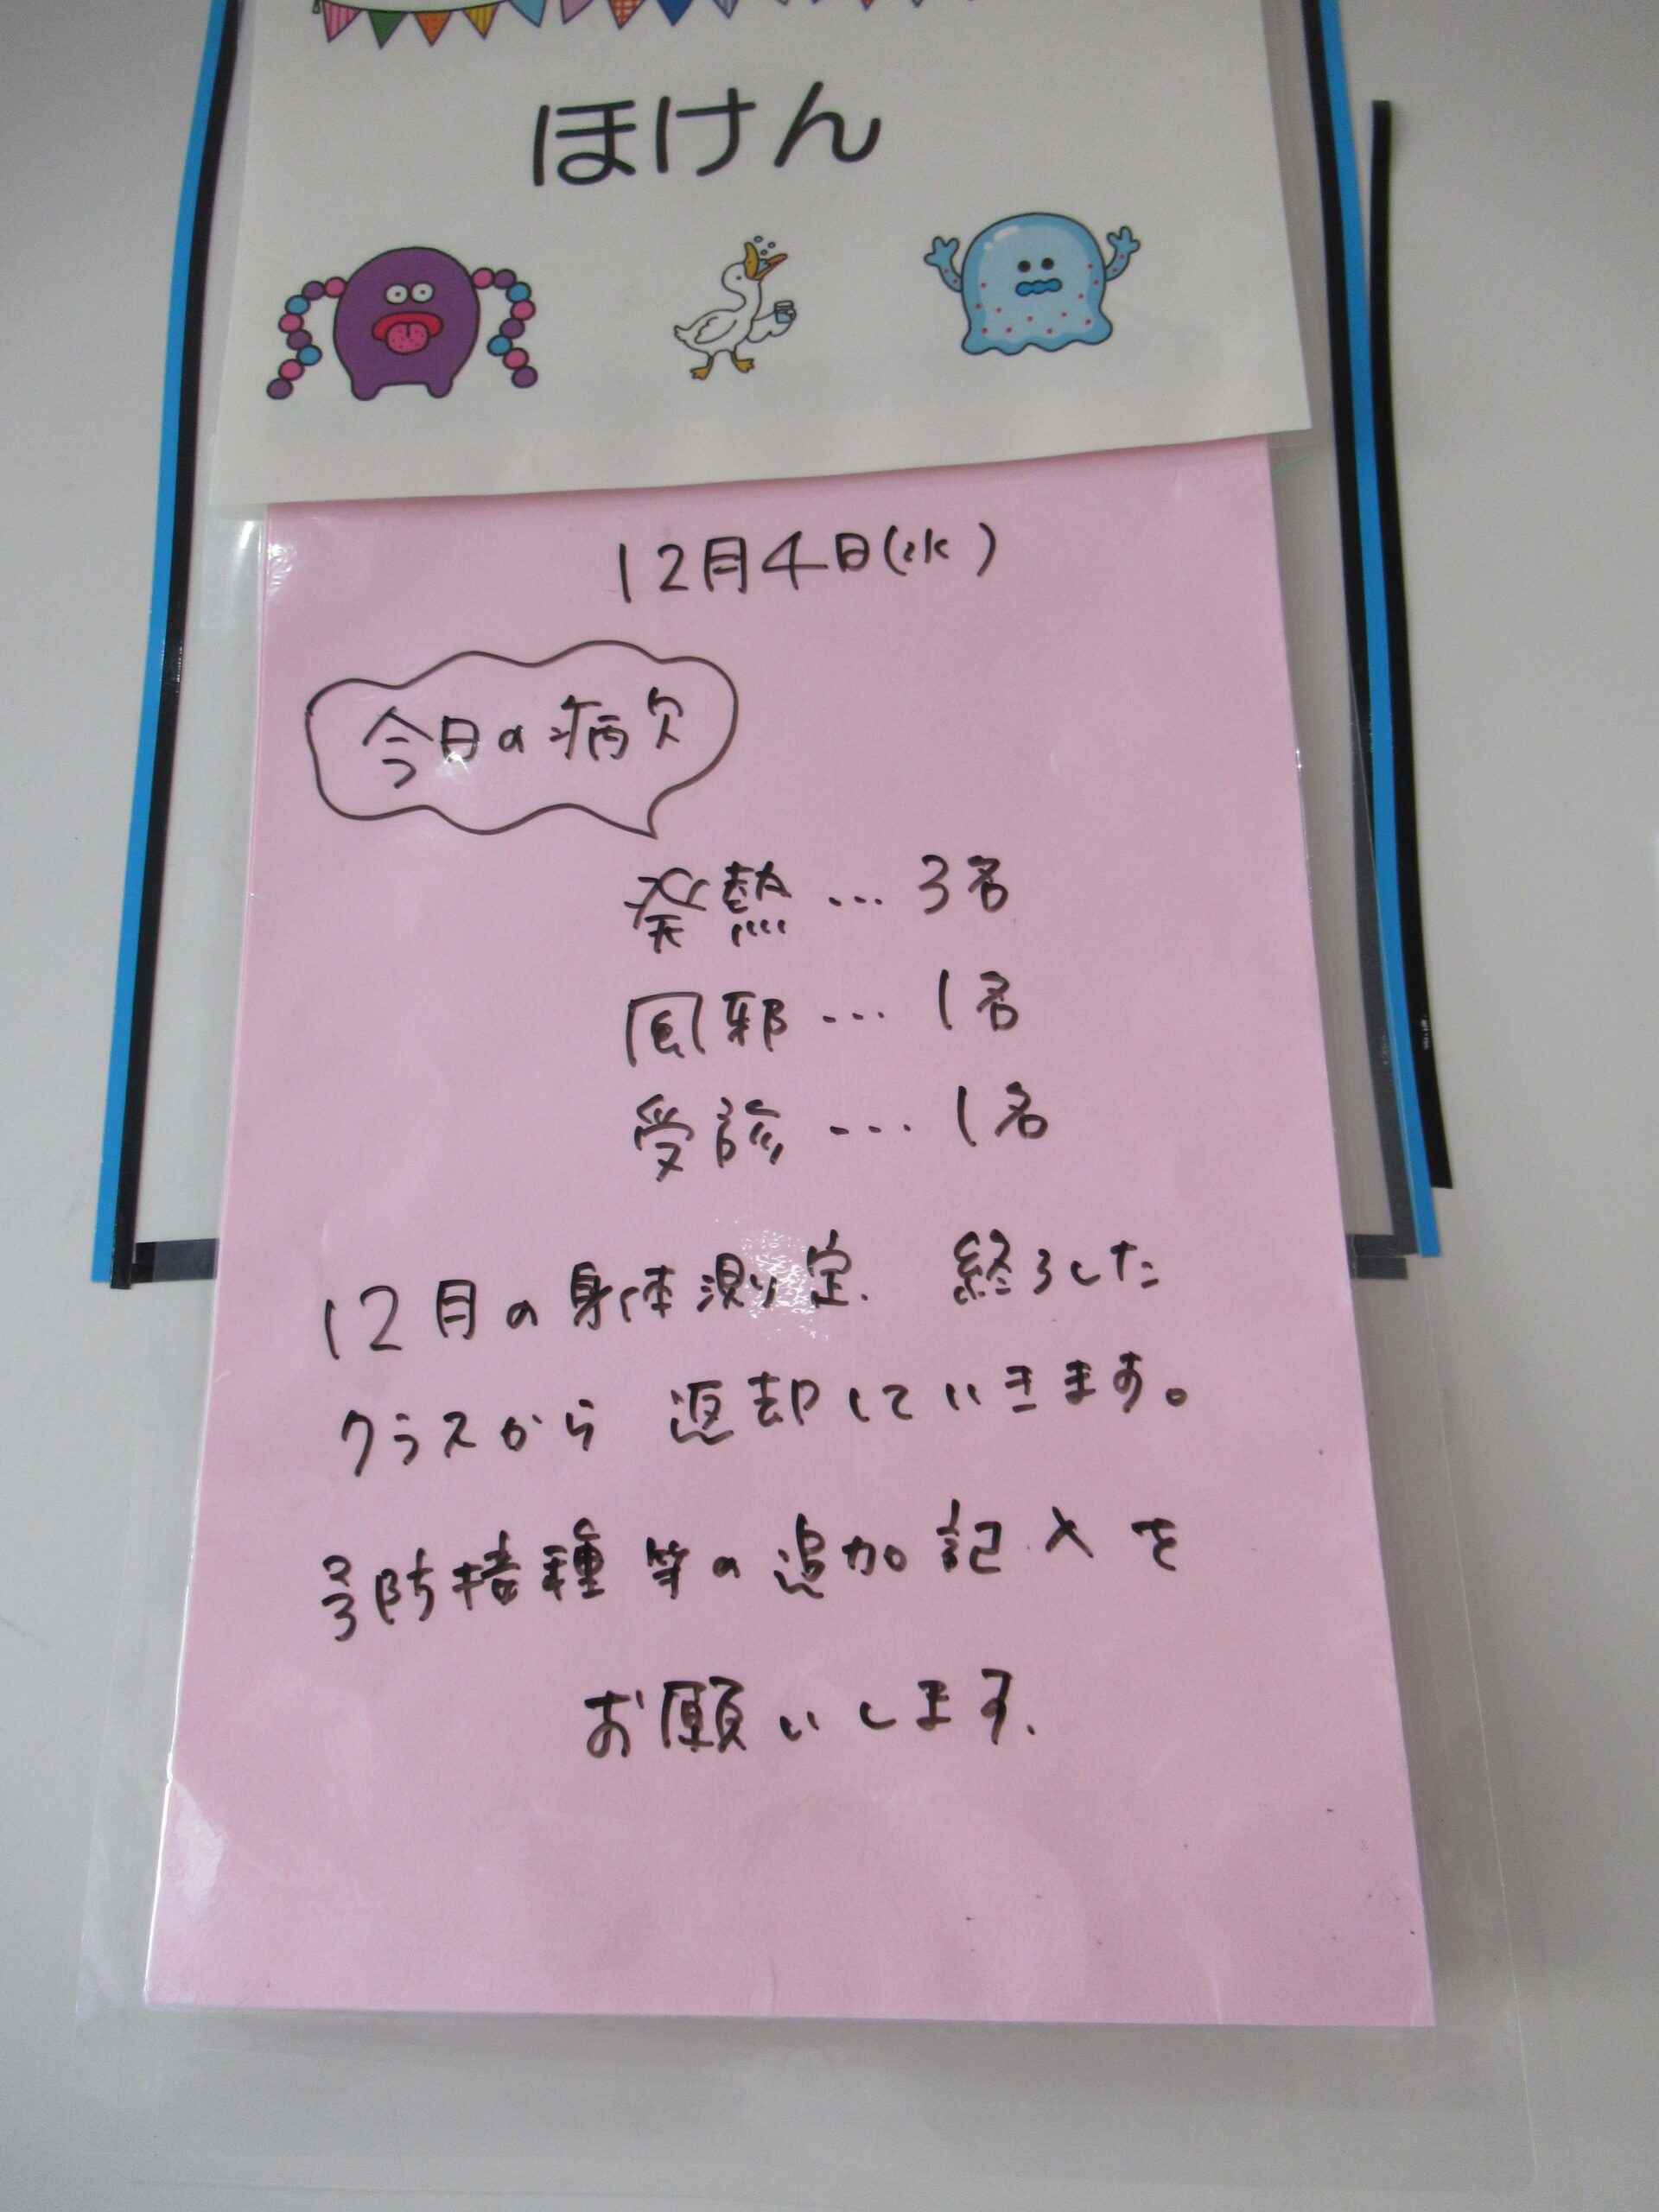 ほけん
12月4日(水)
今日の病欠
発熱…3名
風邪…1名
受診…1名
12月の身体測定 終了した
クラスから 返却していきます。
予防接種等の追加記入を
お願いします.